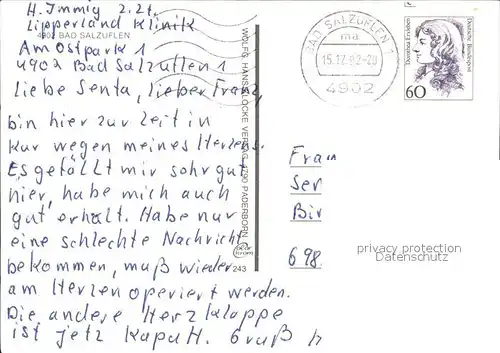 H. Jmmig z.Zt.
Lipperland Klinik
4902 BAD SALZUFLEN
Am Ostpark 1
4902 Bad Salzuflen 1
Liebe Senta, lieber Franz,
bin hier zur Zeit in
Kur wegen meines Herzens.
Es gefällt mir sehr gut
hier, habe mich auch
gut erholt. Habe nur
eine schlechte Nachricht
bekommen, muß wieder
am Herzen operiert werden.
Die andere Herzklappe
ist jetz kaputt. Gruß H
WOLFG. HANS KLOCKE VERLAG 4790 PADERBORN
243
BAD SALZUFLEN 1
ma
15.12.92-20
4902
Dorothea Erxleben
Deutsche Bundespost
60
Frau
Ser
Bir
698
privacy protection
Datenschutz